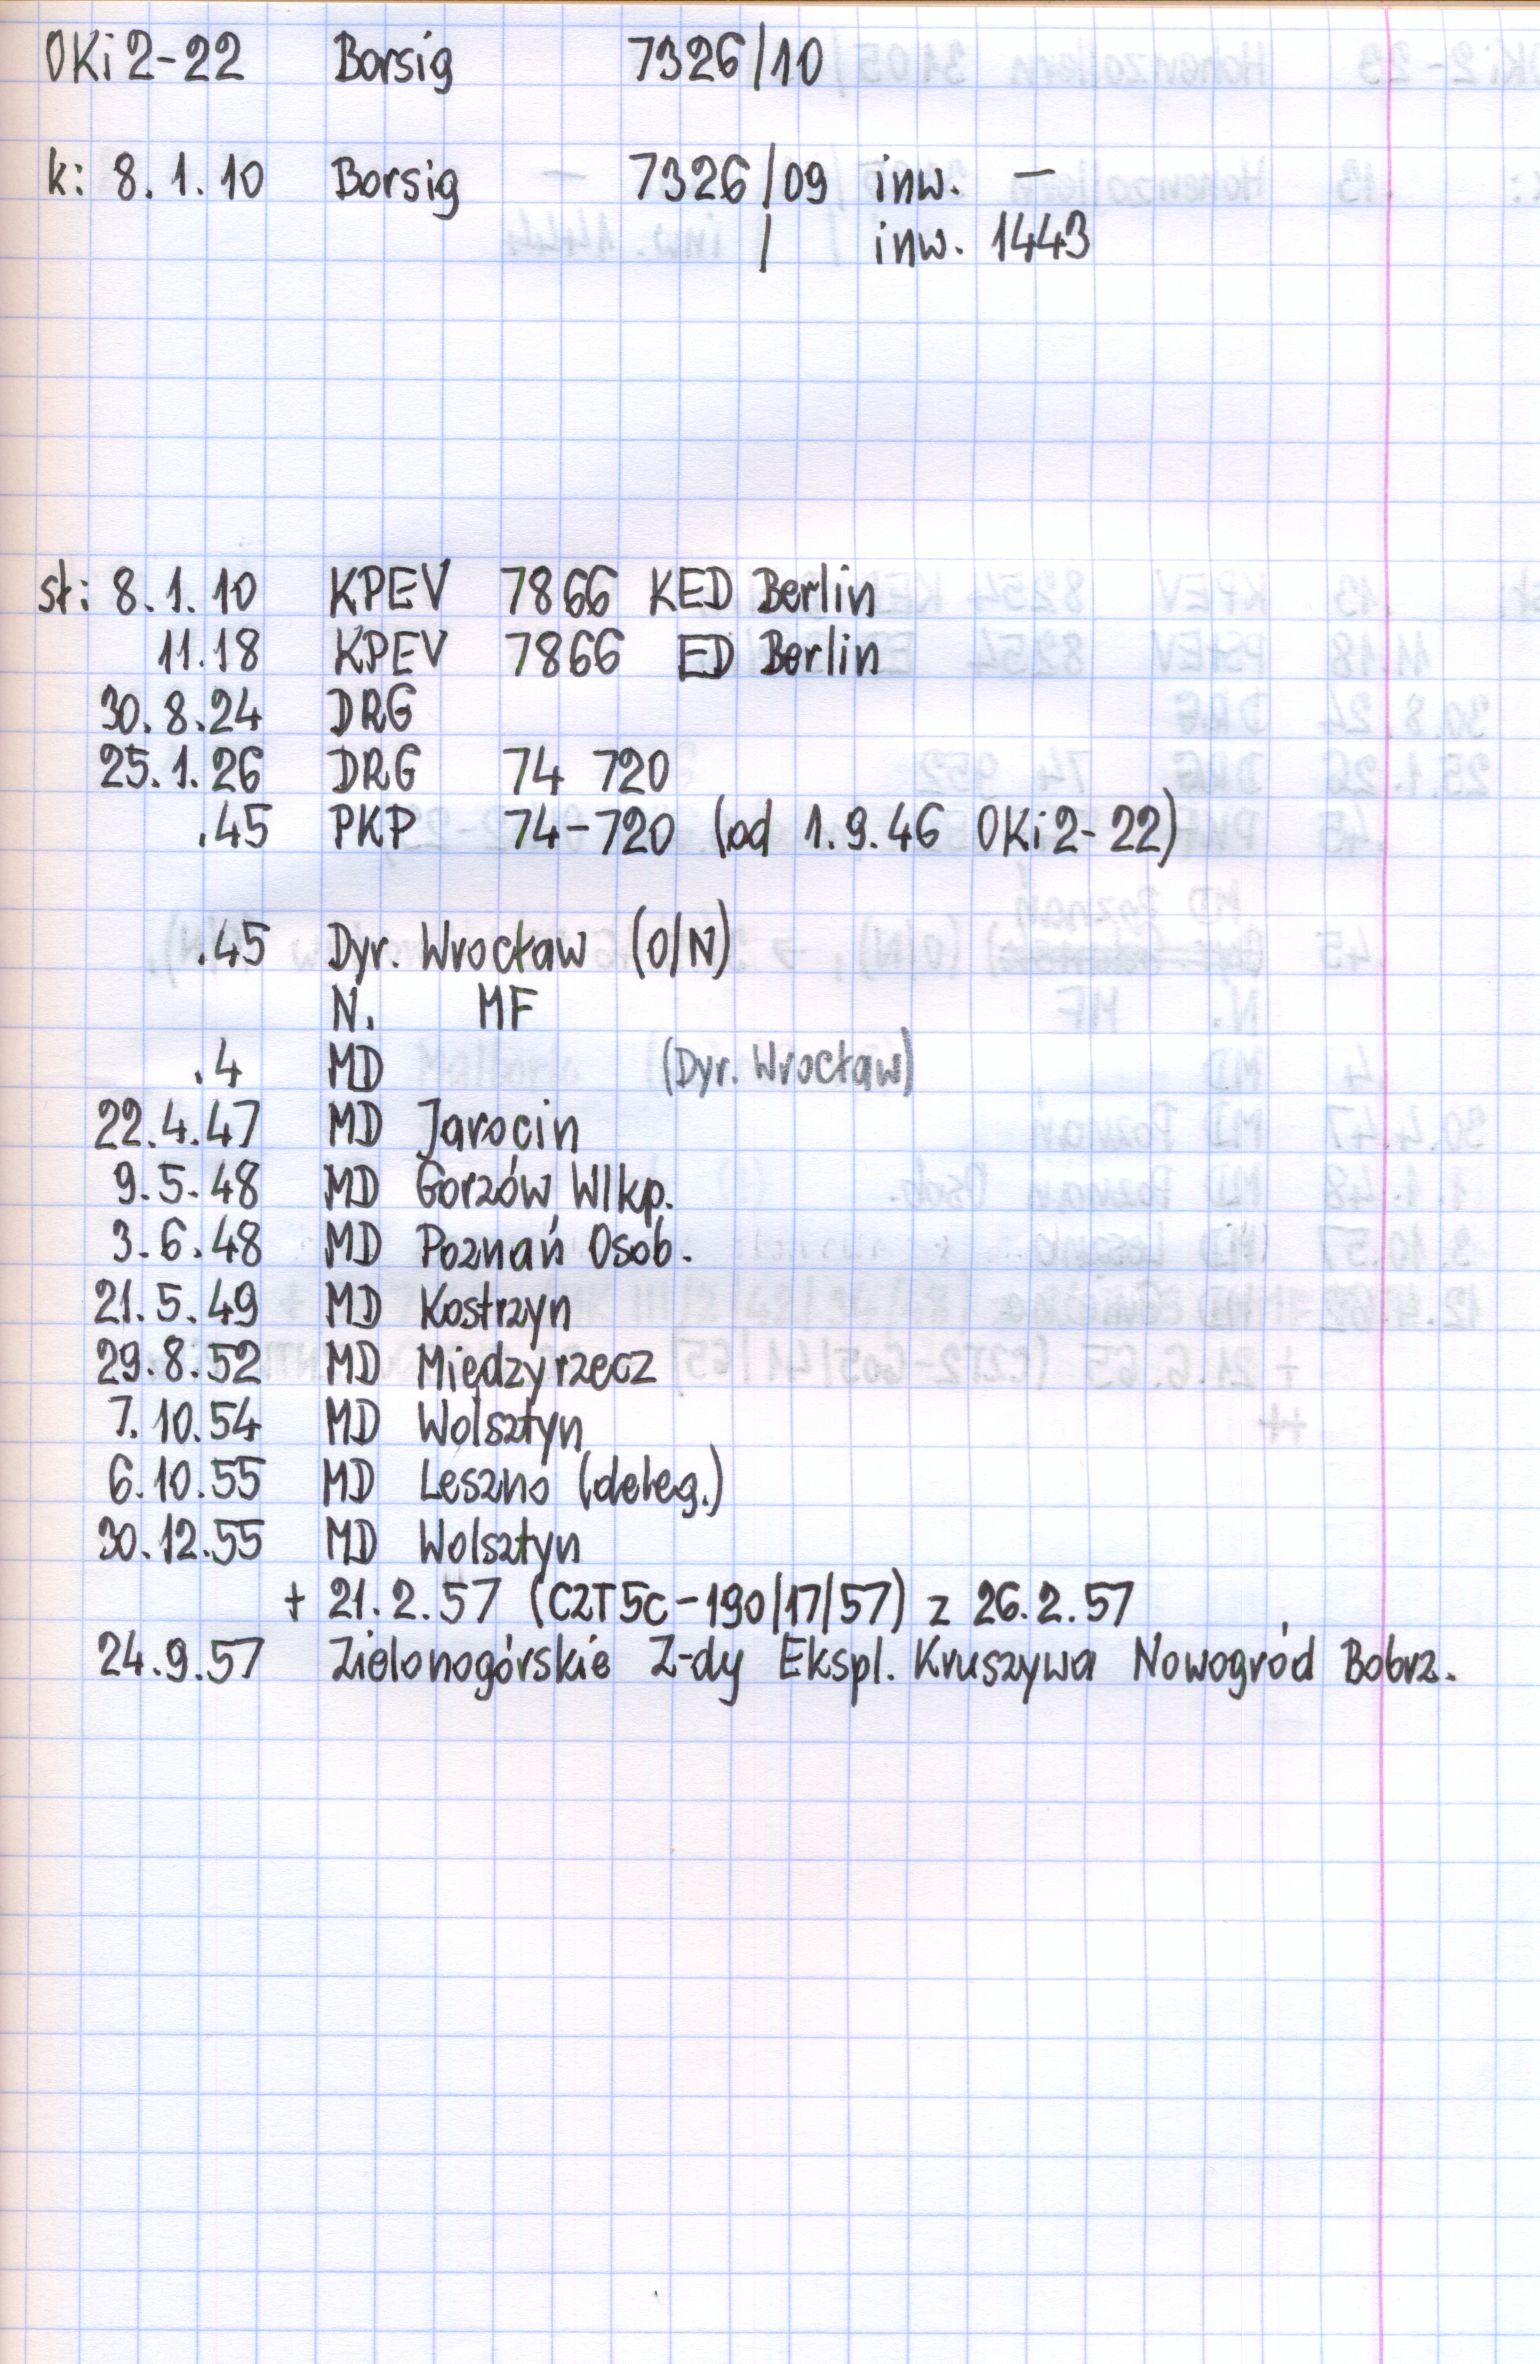 OKi2-22 Borsig 7326/10
k: 8.1.10 Borsig - 7326/09 inw. -
/ inw. 1443
st: 8.1.10 KPEV 7866 KED Berlin
11.18 KPEV 7866 ED Berlin
30.8.24 DRG
25.1.26 DRG 74 720
.45 PKP 74-720 (od 1.9.46 OKi2-22)
.45 Dyr. Wrocław (O/N)
N. MF
.4 MD (Dyr. Wrocław)
22.4.47 MD Jarocin
9.5.48 MD Gorzów Wlkp.
3.6.48 MD Poznań Osob.
21.5.49 MD Kostrzyn
29.8.52 MD Międzyrzecz
7.10.54 MD Wolsztyn
6.10.55 MD Leszno (deleg.)
30.12.55 MD Wolsztyn
+ 21.2.57 (CZT5c-190/17/57) z 26.2.57
24.9.57 Zielonogórskie Z-dy Ekspl. Kruszywa Nowogród Bobrz.